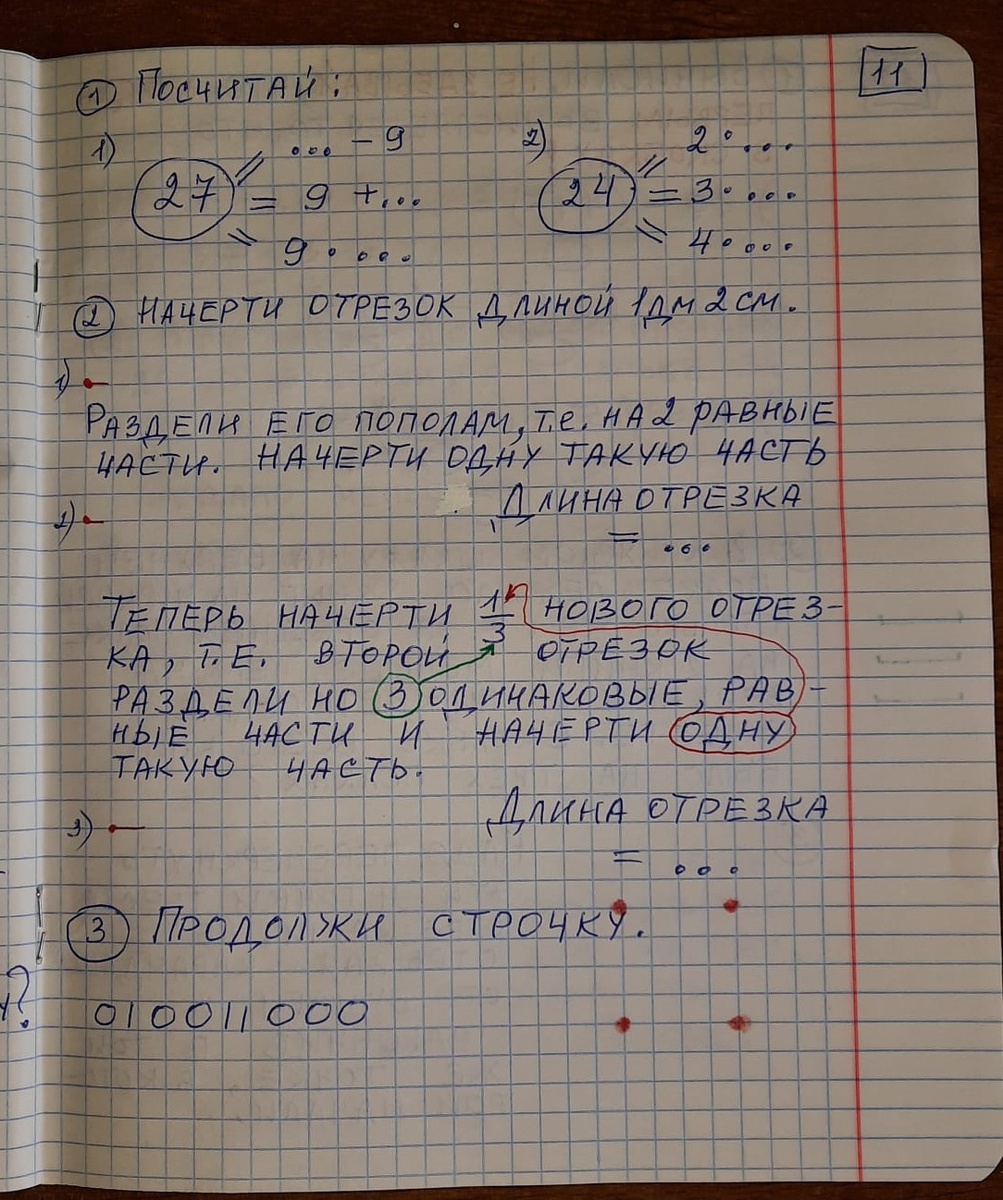 11
① Посчитай:
1) 2)
... - 9 2 · ...
27 = 9 + ... 24 = 3 · ...
9 · ... 4 · ...
② Начерти отрезок длиной 1дм 2 см.
1)
Раздели его пополам, т.е. на 2 равные
части. Начерти одну такую часть
2)
Длина отрезка
= ...
Теперь начерти 1/3 нового отрез-
ка, т.е. второй отрезок
раздели но 3 одинаковые, рав-
ные части и начерти одну
такую часть.
3)
Длина отрезка
= ...
③ Продолжи строчку.
010011000